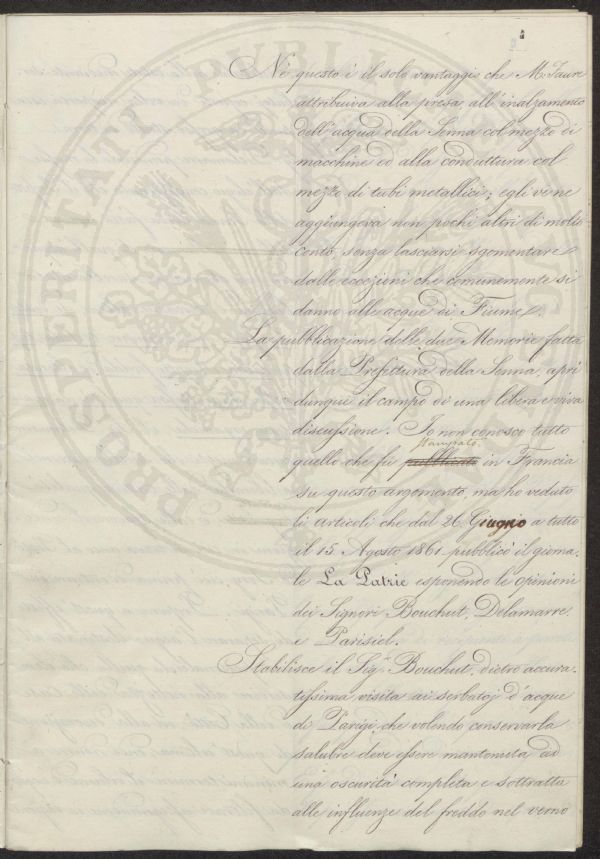 Nè questo è il solo vantaggio che M. Faure
attribuiva alla presa all'inalzamento
dell'acqua della Senna col mezzo di
macchine ed alla conduttura col
mezzo di tubi metallici; egli ve ne
aggiungeva non pochi altri di molto
conto, senza lasciarsi sgomentare
dalle eccezioni che comunemente si
danno alle acque di Fiume.
La pubblicazione delle due Memorie fatta
dalla Prefettura della Senna, aprì
dunque il campo di una libera e viva
discussione. Io non conosco tutto
stampato
quello che fù pubblicato in Francia
su questo argomento, ma ho veduto
li articoli che dal 26 Giugno a tutto
il 15 Agosto 1861 pubblicò il giorna-
le La Patrie esponendo le opinioni
dei Signori Bouchut, Delamarre
e Parisiel.
Stabilisce il Sigr. Bouchut, dietro accura-
tissima visita ai serbatoj d'acque
di Parigi, che volendo conservarla
salubre deve essere mantenuta ad
una oscurità completa e sottratta
alle influenze del freddo nel verno
PROSPERITATI PUBLI